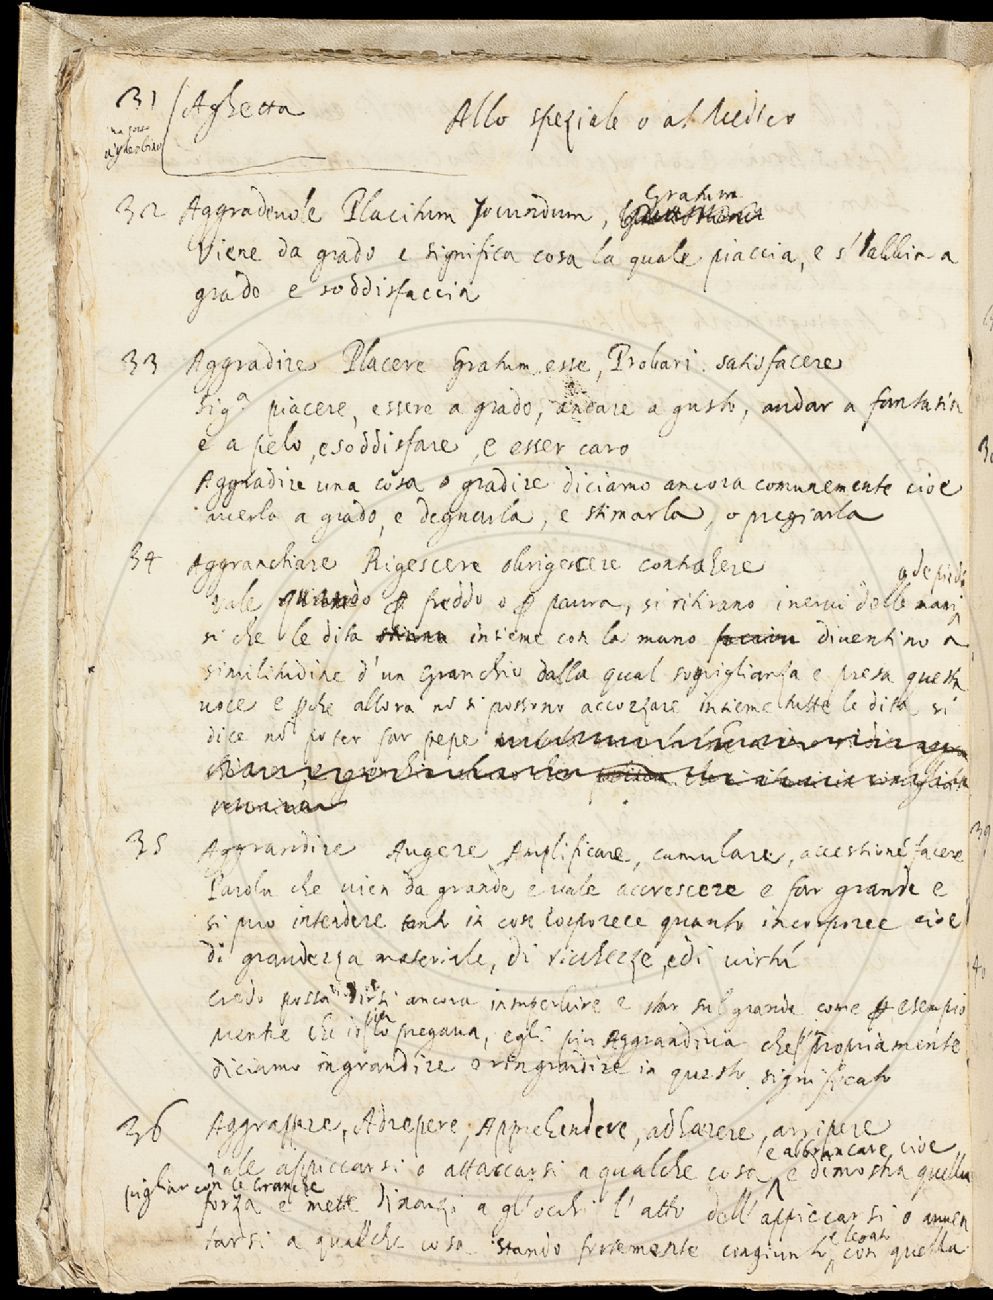 31 Aghetta Allo speziale o al Medico
32 Aggradevole Placitum Jocundum, Gratum
Viene da grado e significa cosa la quale piaccia, e s'habbia a
grado e soddisfaccia
33 Aggradire Placere Gratum esse, Probari. satisfacere
sig.a piacere, essere a grado, andare a gusto, andar a fantasia
e a pelo, e soddisfare, e esser caro
Aggradire una cosa o gradire diciamo ancora comunemente cioe
averla a grado, e degnarla, e stimarla, o pregiarla
34 Aggranchiare Rigescere obrigescere contrahere
o de piedi
vale quando p freddo o p paura, si ritirano i nervi delle mani
si che le dita insieme con la mano diventino a
similitudine d'un Granchio dalla qual somiglianza e presa questa
voce e pche allora no si possono accozzare insieme tutte le dita si
dice no poter far pepe
35 Aggrandire Augere Amplificare, cumulare, accessione facere
Parola che vien da grande e vale accrescere e far grande e
si puo intendere tanto in cose corporee quanto incorporee cioe
di grandezza materiale, di ricchezze, e di virtú
credo possa dirsi ancora insuperbire e star sul grande come p esempio
mentre che io lo pregava, egli piu Aggrandiva che propriamente
diciamo ingrandire o ringrandire in questo significato
36 Aggrappare, Adrepere, Apprehendere, adhaerere, arripere
e abbrancare cioe
vale appiccarsi o attaccarsi a qualche cosa, e dimostra quella
pigliar con le branche
forza e mette dinanzi a gl'occhi l'atto dell'appiccarsi o avven
tarsi a qualche cosa stando fortemente congiunto con quella